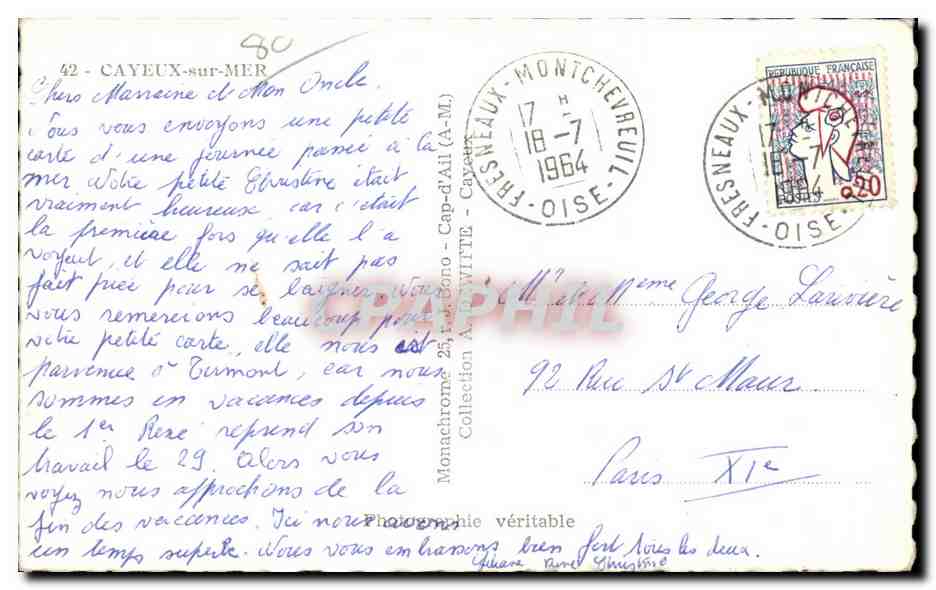 80
42 - CAYEUX-sur-MER
Chers Marraine et Mon Oncle.
Nous vous envoyons une petite
carte d'une journée passée à la
mer Notre petite Christine était
vraiment heureuse car c'était
la première fois qu'elle l'a
voyait, et elle ne sait pas
fait priée pour se baigner. Nous
vous remercions beaucoup pour
votre petite carte, elle nous est
parvenue à Termont, car nous
sommes en vacances depuis
le 1er René reprend son
travail le 29. Alors vous
voyez nous approchons de la
fin des vacances. Ici nous avons
un temps superbe. Nous vous embrassons bien fort tous les deux.
René Christine
Monachrome 25, r. J. Bono - Cap-d'Ail (A-M.)
Collection A. DEWITTE - Cayeux
Photographie véritable
CPAPHIL
FRESNEAUX-MONTCHEVREUIL
17 H
18 -7
1964
- OISE -
FRESNEAUX-MONTCHEVREUIL
17 H
18 -7
1964
- OISE -
REPUBLIQUE FRANÇAISE
0,20
POSTES
Mr et Mme George Larivière
92 Rue St Maur.
Paris XIe